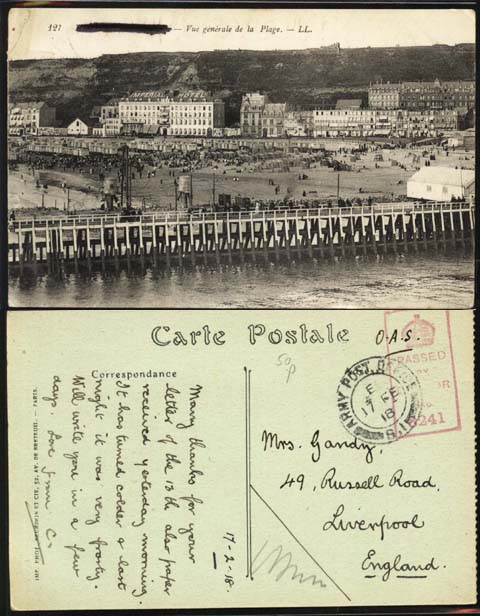 127
— Vue générale de la Plage. — LL.
IMPERIAL HOTEL
Carte Postale
O.A.S.
50p
PASSED
BY
No.
3241
ARMY POST OFFICE
E
17 FE
18
Correspondance
17-2-18.
Many thanks for your
letter of the 13th also paper
received yesterday morning.
It has turned colder & last
night it was very frosty.
Will write you in a few
days. Love from C.
Mrs. Gandy,
49, Russell Road,
Liverpool
England.